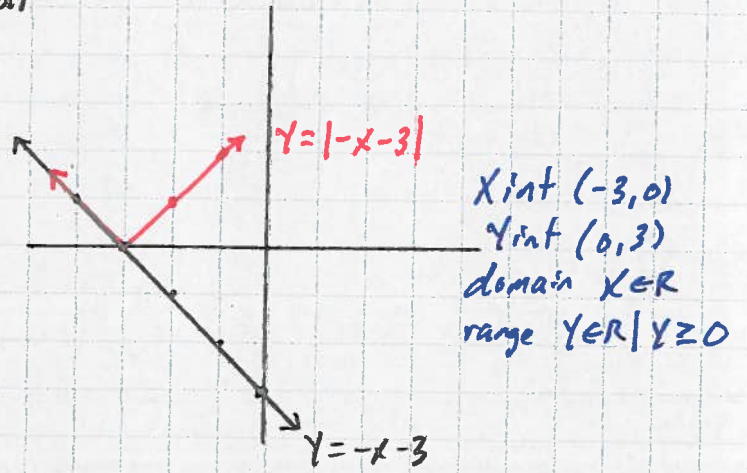 Y=|-x-3|
Xint (-3,0)
Yint (0,3)
domain X∈R
range Y∈R | Y≥0
Y=-x-3